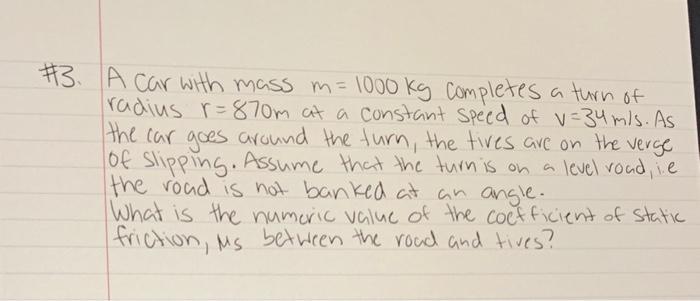 #3. A car with mass m = 1000 kg completes a turn of
radius r = 870m at a constant speed of v = 34 m/s. As
the car goes around the turn, the tires are on the verge
of slipping. Assume that the turn is on a level road, i.e
the road is not banked at an angle.
What is the numeric value of the coefficient of static
friction, μs between the road and tires?